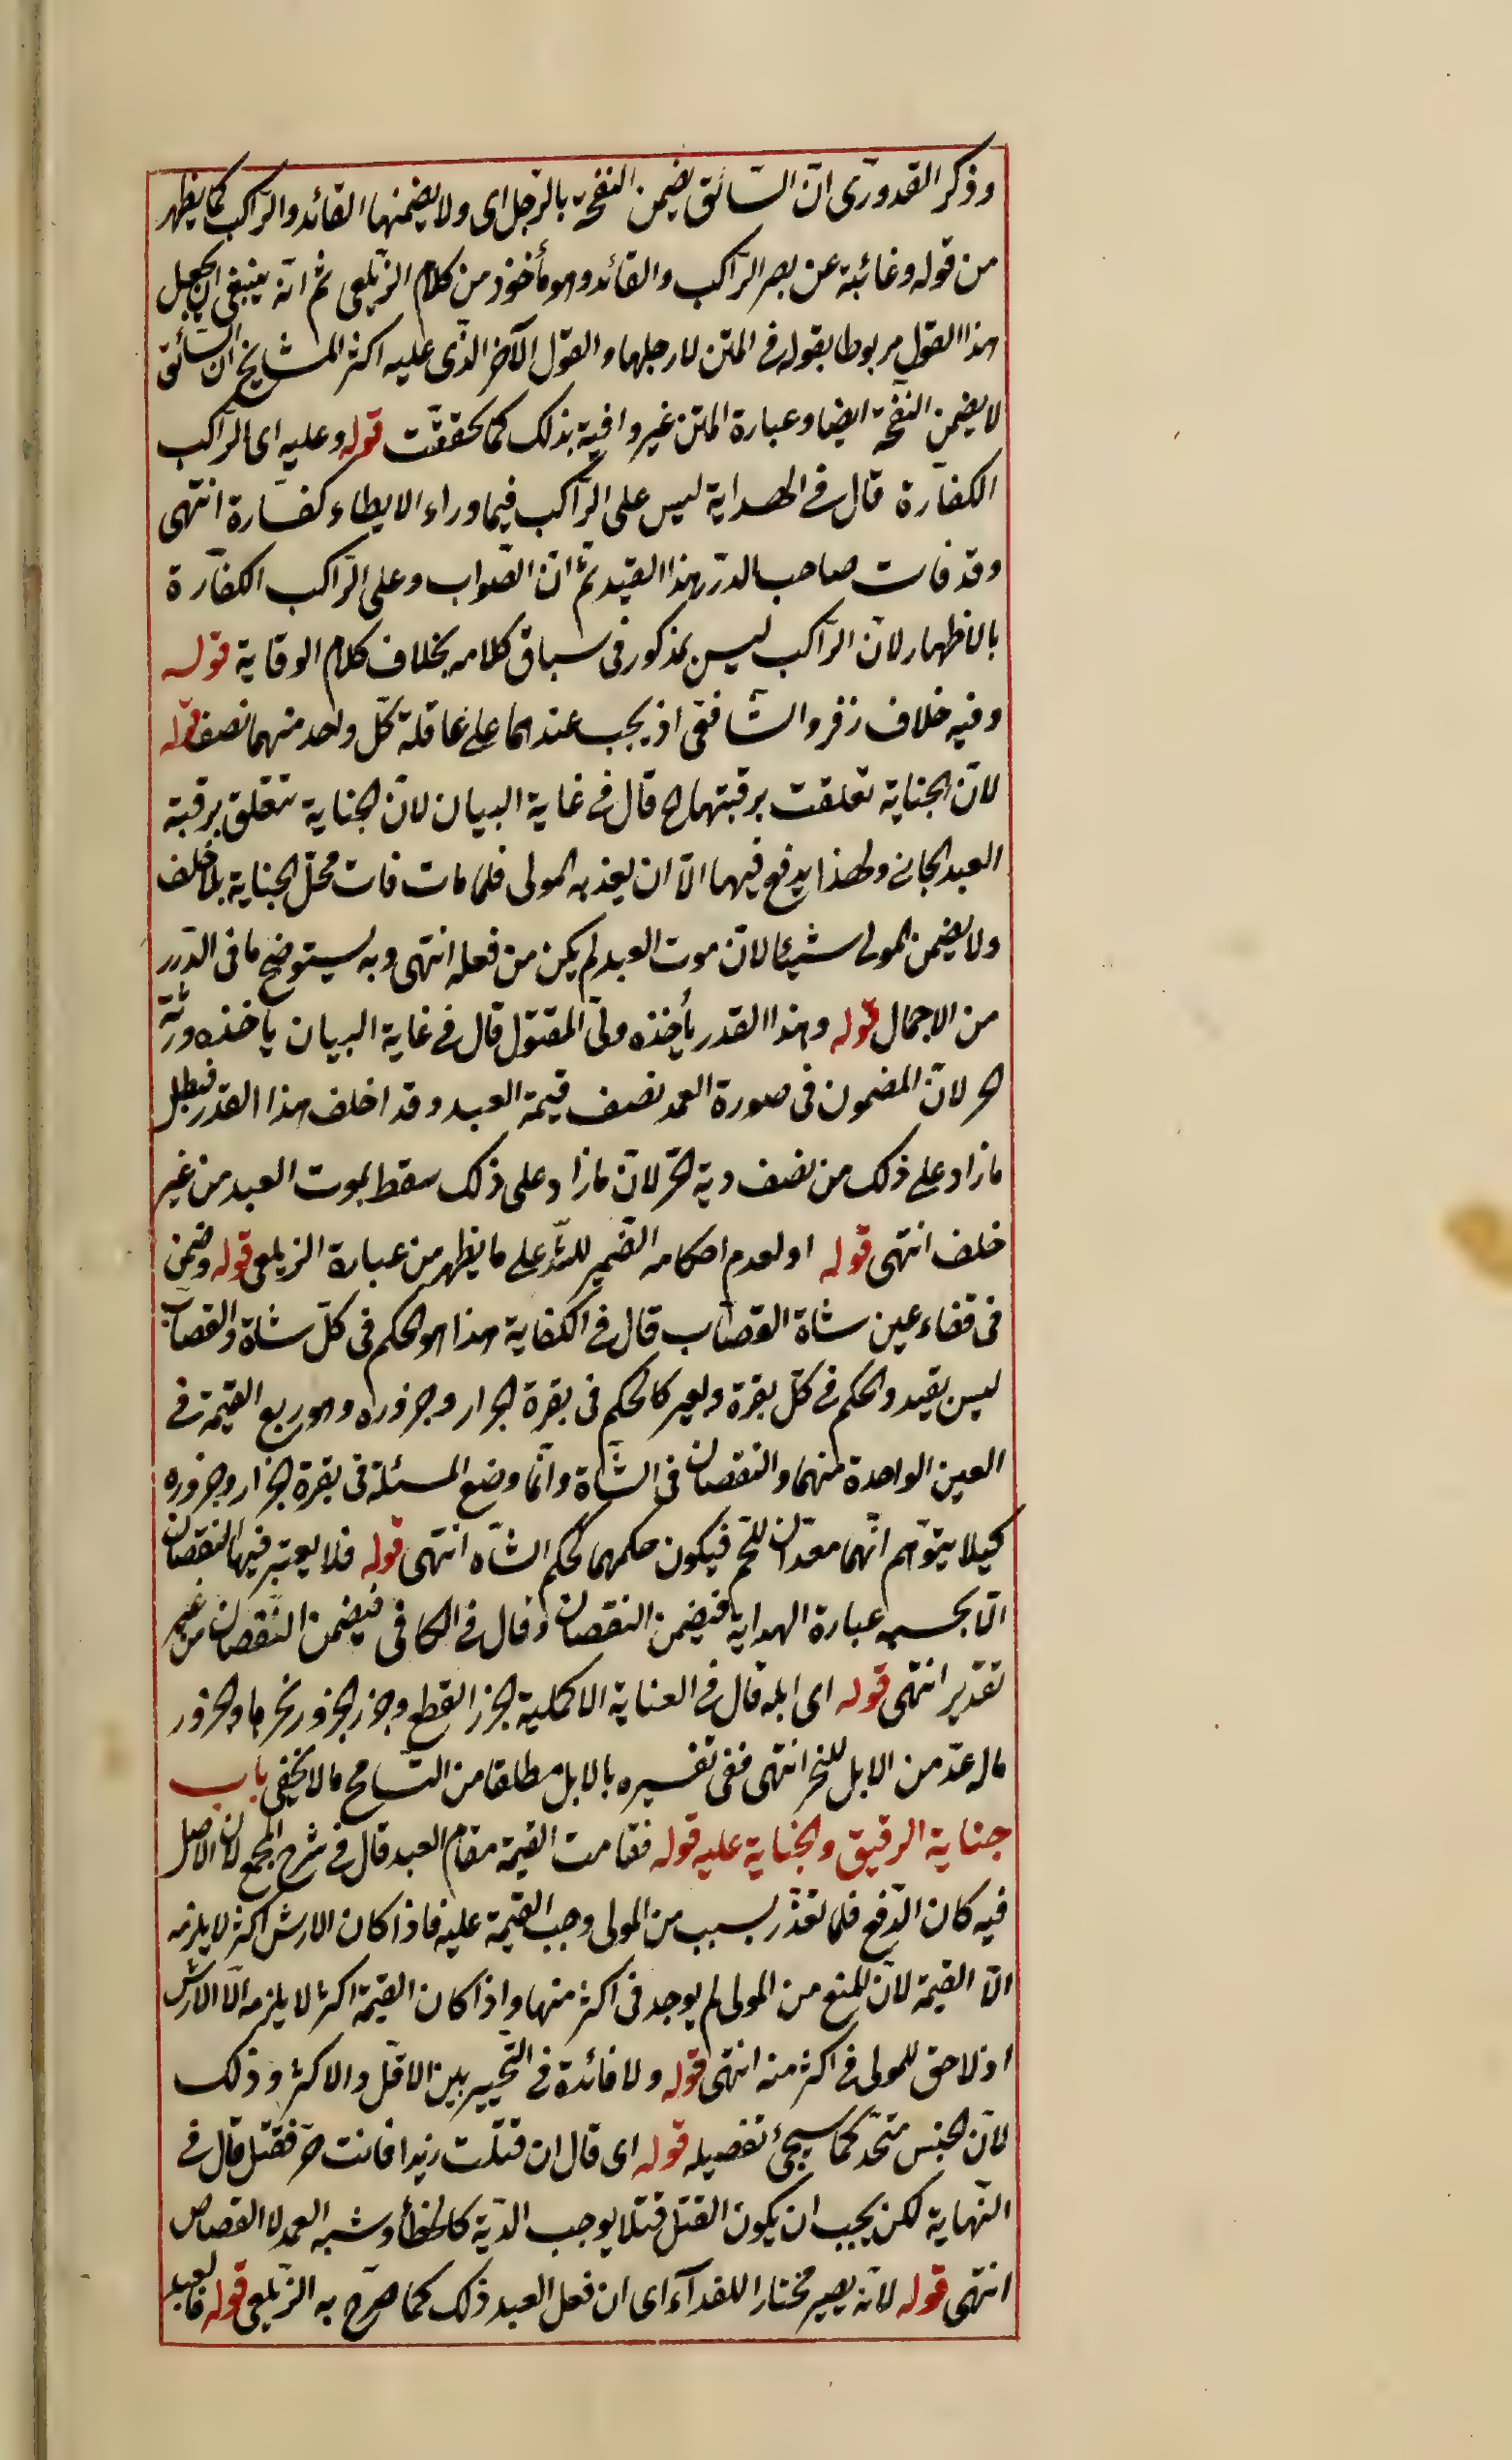 وذكر القدورى انّ السّائق يضمن النفحة بالرّجل اى ولا يضمنها القائد والرّاكب كما يظهر
من قوله وغائبة عن بصر الرّاكب والقائد وهو مأخوذ من كلام الزّيلعى ثم انّه ينبغى ان يجعل
هذا القول مربوطا بقوله فى المتن لا رجلها والقول الآخر الذّى عليه اكثر المشايخ انّ السّائق
لا يضمن النّفحة ايضا وعبارة المتن غير وافية بذلك كما تحققّت قوله وعليه اى الرّاكب
الكفّارة قال فى الهداية ليس على الرّاكب فيما وراء الايطاء كفّارة انتهى
وقد فات صاحب الدرر هذا القيد ثمّ انّ الصّواب وعلى الرّاكب الكفّارة
بالاظهار لانّ الرّاكب ليس بمذكور فى سباق كلامه بخلاف كلام الوقاية قوله
وفيه خلاف زفر والشّافعى اذ يجب عندهما على عاقلة كلّ واحد منهما نصف قوله
لانّ الجناية تعلقت برقبتهما الخ قال فى غاية البيان لانّ الجناية تتعلق برقبة
العبد الجانى ولهذا يدفع فيها الّا ان يفديه المولى فلما مات فات محلّ الجناية بلا خلف
ولا يضمن المولى شيئا لانّ موت العبد لم يكن من فعله انتهى وبه يستوضح ما فى الدّرر
من الاجمال قوله وهذا القدر يأخذه ولىّ المقتول قال فى غاية البيان يأخذه ورثة
الحر لانّ المضمون فى صورة العمد نصف قيمة العبد وقد اخلف هذا القدر فبطل
ما زاد على ذلك من نصف دية الحرّ لانّ ما زاد على ذلك سقط بموت العبد من غير
خلف انتهى قوله او لعدم احكامه الضّمير للشّد على ما يظهر من عبارة الزيلعى قوله وضمن
فى فقاء عين شاة القصّاب قال فى الكفاية هذا هو الحكم فى كلّ شاة والقصّاب
ليس بقيد والحكم فى كلّ بقرة وبعير كالحكم فى بقرة الجزار وجزوره وهو ربع القيمة فى
العين الواحدة منهما والنقصان فى الشّاة وانّما وضع المسئلة فى بقرة الجزار وجزوره
كيلا يتوّهم انّهما معدّان للّحم فيكون حكمهما كحكم الشّاه انتهى قوله فلا يعتبر فيها النقصان
الّا بحسبه عبارة الهداية فيضمن النقصان وقال فى الكافى فيضمن النّقصان من غير
تقدير انتهى قوله اى ابله قال فى العناية الاكملية الجزر القطع وجزر الجزور نحرها والجزور
ماله عدّ من الابل للنحر انتهى ففى تفسيره بالابل مطلقا من التّسامح ما لا يخفى باب
جناية الرقيق والجناية عليه قوله فقامت القيمة مقام العبد قال فى شرح المجمع لانّ الاصل
فيه كان الدّفع فلما تعذّر بسبب من المولى وجب القيمة عليه فاذا كان الارش اكثر لا يلزمه
الّا القيمة لانّ المنع من المولى لم يوجد فى اكثر منها واذا كان القيمة اكثر لا يلزمه الّا الارش
اذ لا حق للمولى فى اكثر منه انتهى قوله ولا فائدة فى التّخيير بين الاقلّ والاكثر وذلك
لانّ الجنس متّحد كما سيجئ تفصيله قوله اى قال ان قتلت زيدا فانت حرّ فقتل قال فى
النّهاية لكن يجب ان يكون القتل قتلا يوجب الدّية كالخطأ وشبه العمد لا القصاص
انتهى قوله لانّه يصير مختارا للفدآء اى ان فعل العبد ذلك كما صرّح به الزّيلعى قوله فالعبد